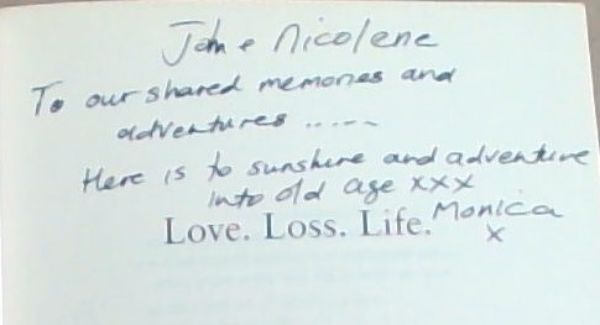 John e Nicolene
To our shared memories and
adventures .....
Here is to sunshine and adventure
into old age xxx
Love. Loss. Life. Monica
x